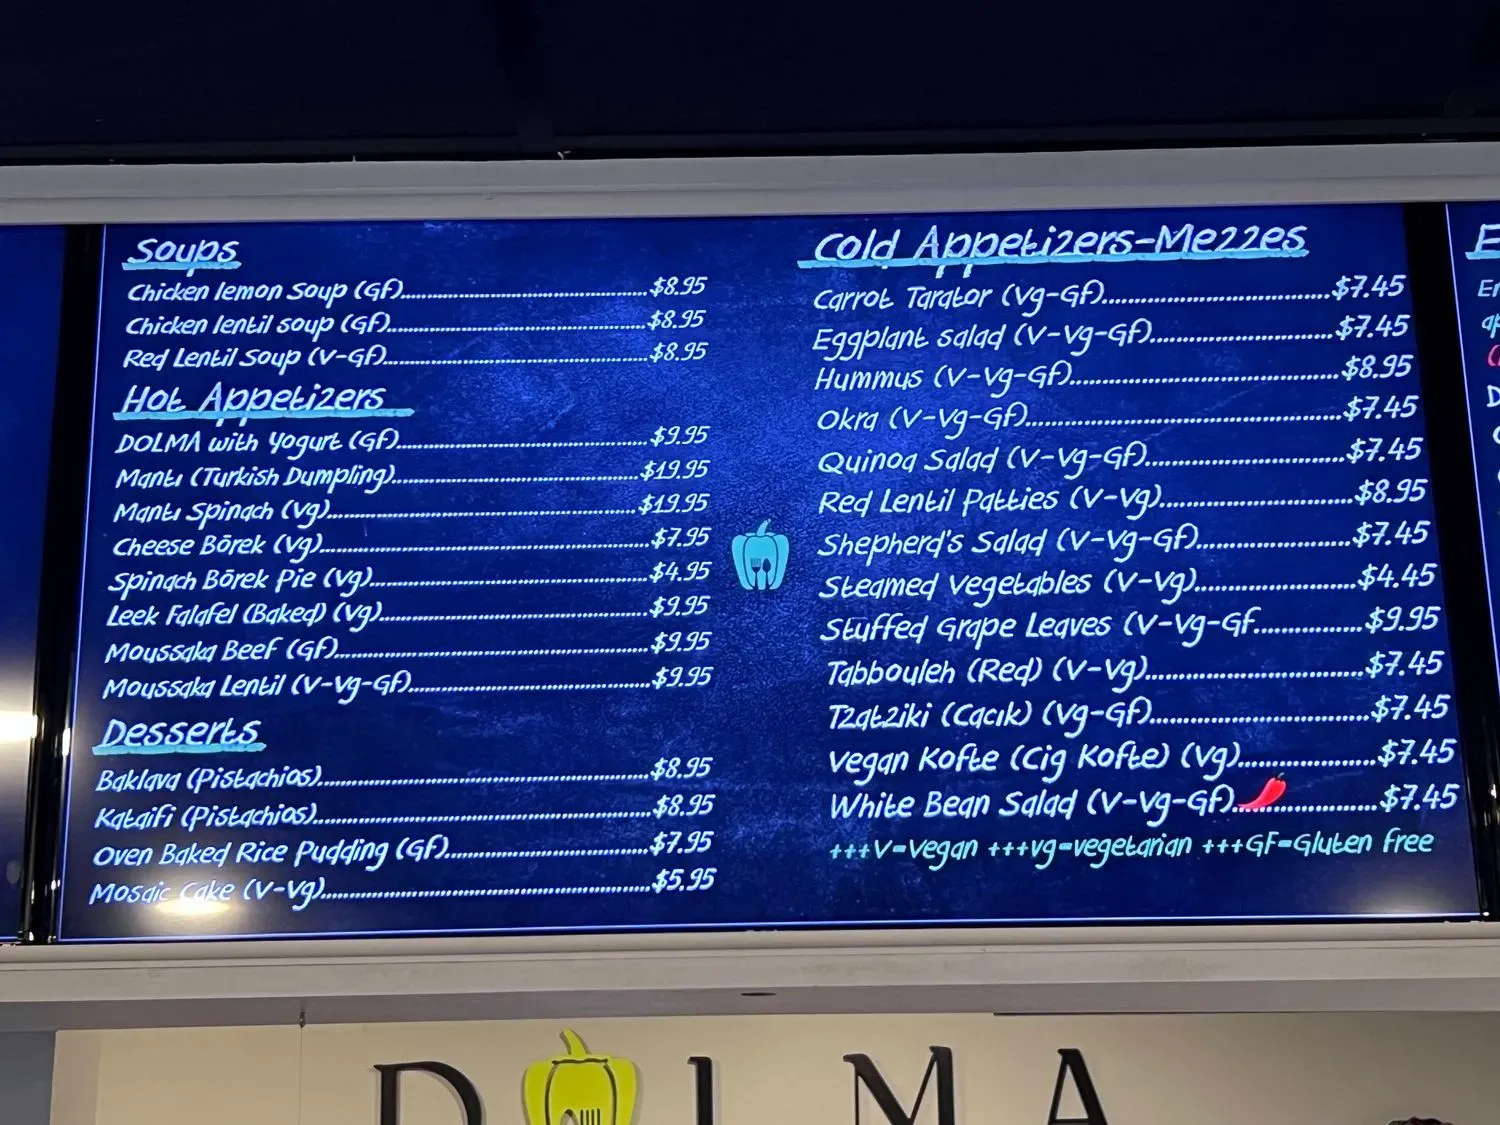 Soups
Chicken lemon Soup (Gf)....$8.95
Chicken lentil soup (Gf)....$8.95
Red Lentil Soup (V-Gf)....$8.95
Hot Appetizers
DOLMA with Yogurt (Gf)....$9.95
Mantı (Turkish Dumpling)....$19.95
Mantı Spinach (Vg)....$19.95
Cheese Börek (Vg)....$7.95
Spinach Börek Pie (Vg)....$4.95
Leek Falafel (Baked) (Vg)....$9.95
Moussaka Beef (Gf)....$9.95
Moussaka Lentil (V-Vg-Gf)....$9.95
Desserts
Baklava (Pistachios)....$8.95
Kataifi (Pistachios)....$8.95
Oven Baked Rice Pudding (Gf)....$7.95
Mosaic Cake (V-Vg)....$5.95
Cold Appetizers-Mezzes
Carrot Tarator (Vg-Gf)....$7.45
Eggplant Salad (V-Vg-Gf)....$7.45
Hummus (V-Vg-Gf)....$8.95
Okra (V-Vg-Gf)....$7.45
Quinoa Salad (V-Vg-Gf)....$7.45
Red Lentil Patties (V-Vg)....$8.95
Shepherd's Salad (V-Vg-Gf)....$7.45
Steamed Vegetables (V-Vg)....$4.45
Stuffed Grape Leaves (V-Vg-Gf....$9.95
Tabbouleh (Red) (V-Vg)....$7.45
Tzatziki (Cacık) (Vg-Gf)....$7.45
Vegan Kofte (Cig Kofte) (Vg)....$7.45
White Bean Salad (V-Vg-Gf)....$7.45
+++V=Vegan +++Vg=Vegetarian +++GF=Gluten Free
DOLMA